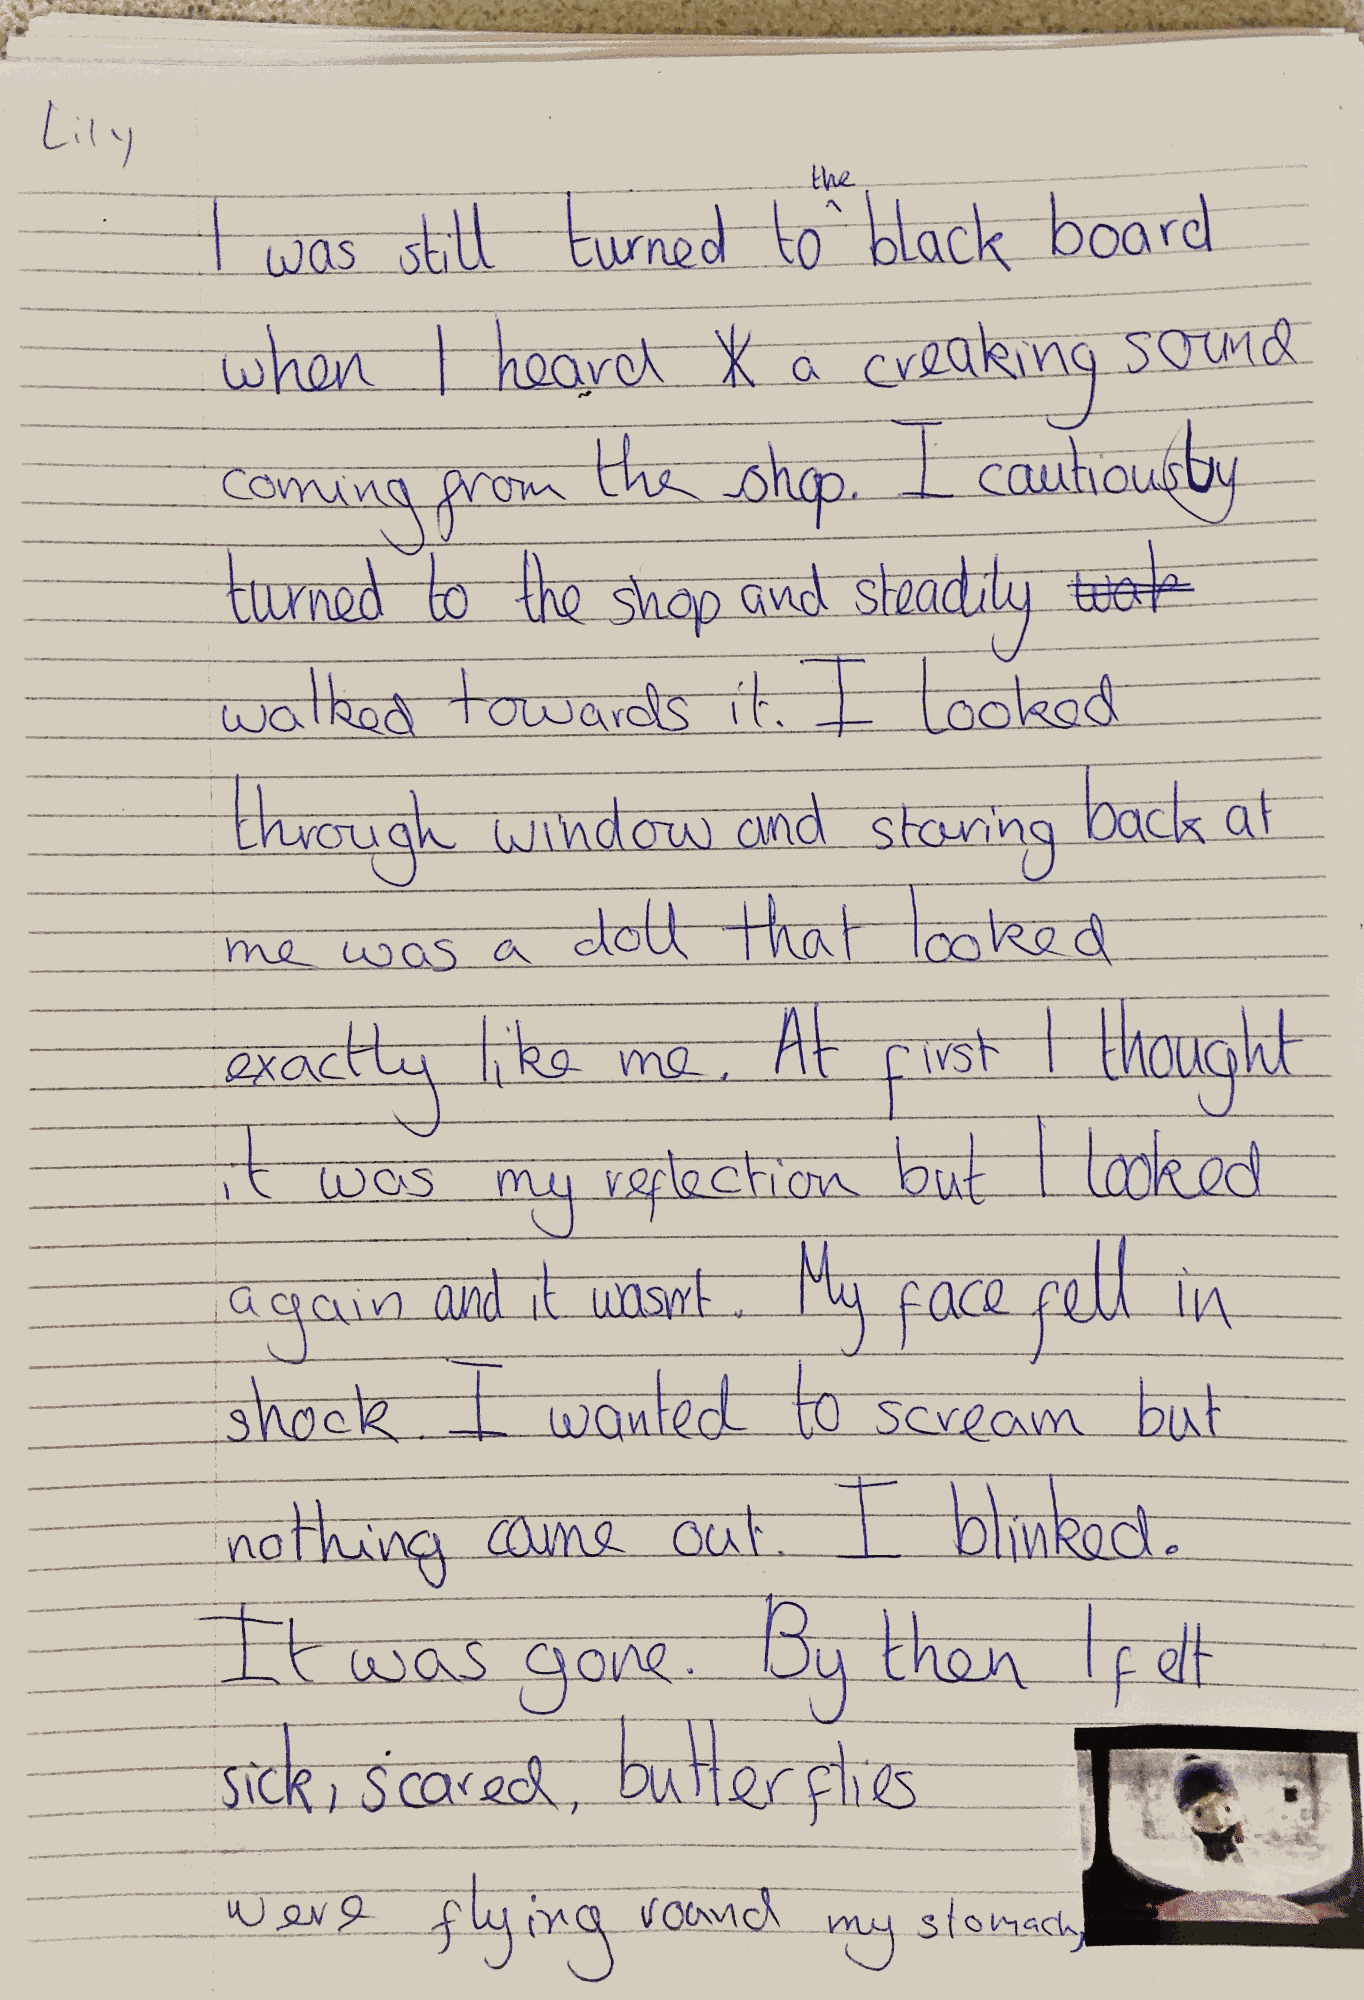 Lily
the
I was still turned to black board
when I heard a creaking sound
coming from the shop. I cautiously
turned to the shop and steadily wak
walked towards it. I looked
through window and staring back at
me was a doll that looked
exactly like me. At first I thought
it was my reflection but I looked
again and it wasn't. My face fell in
shock. I wanted to scream but
nothing came out. I blinked.
It was gone. By then I felt
sick, scared, butterflies
were flying round my stomach,